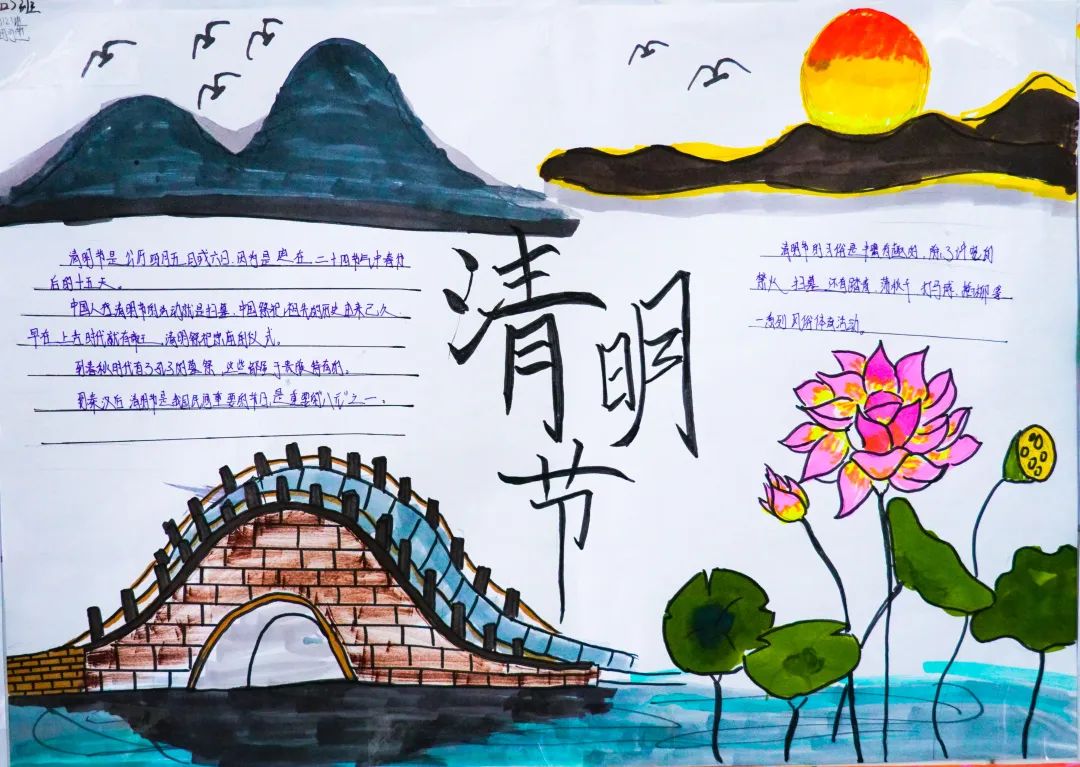 班
清明节是公历四月五日或六日,因为是 在 二十四节气中春分
后的十五天。
中国人在清明节的活动就是扫墓,中国祭祀祖先的历史由来已久
早在上古时代就有 清明祭祀 仪式。
到春秋时代有了 的墓祭,这些都属于贵族特有的。
到秦汉后 清明节是我国民间重要的节日,是重要的"八 "之一。
清明
节
清明节的习俗是丰富有趣的,除了讲究的
禁火 扫墓 还有踏青 荡秋千 打马球 插柳等
一系列风俗体育活动。